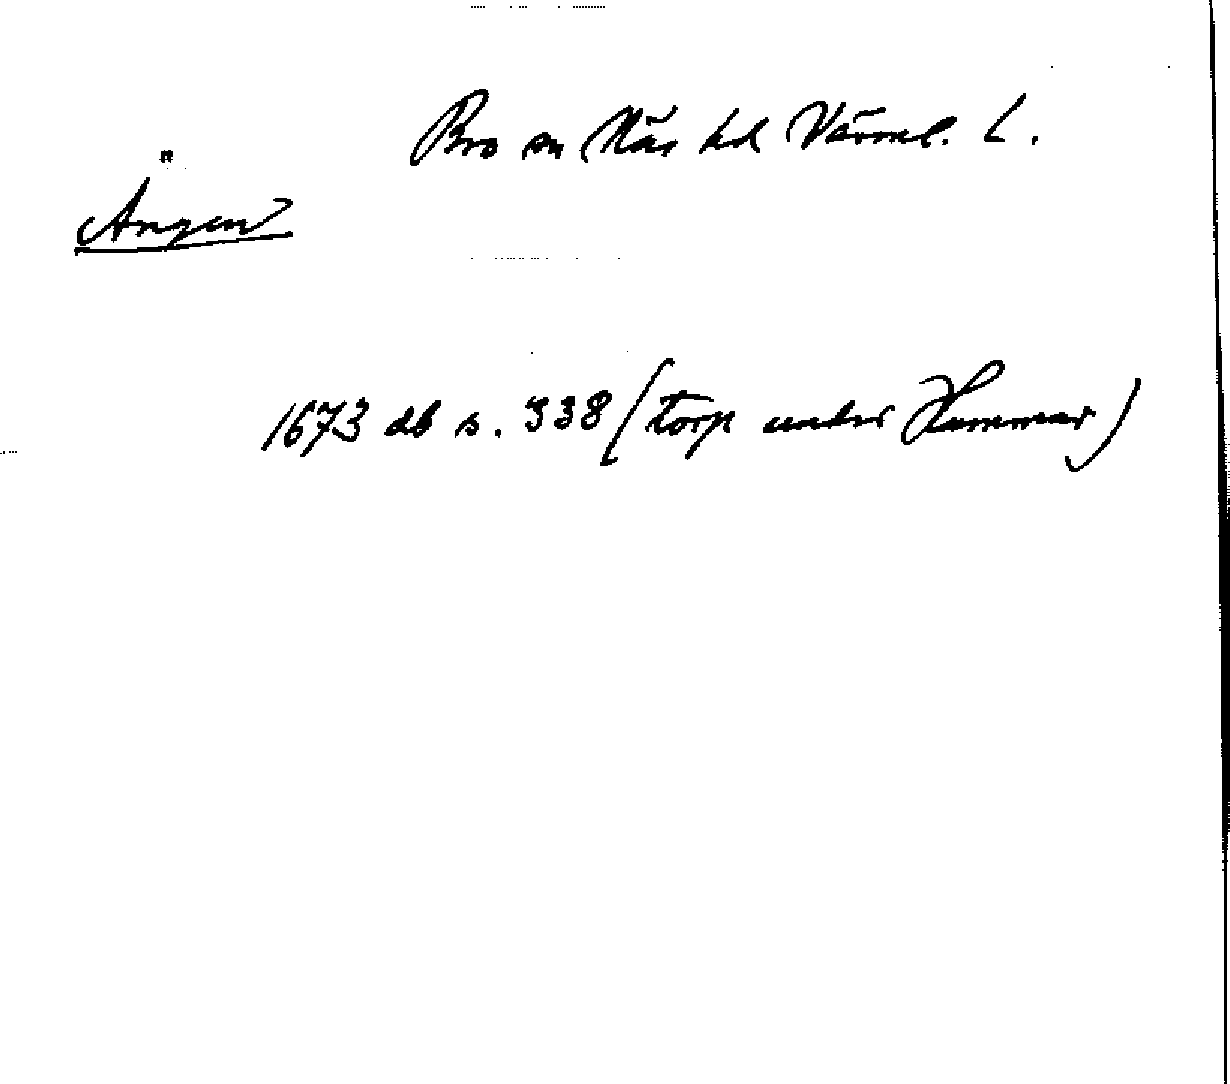 Bro sn Näs hd Värml. L.
Ängen
1673 db s. 338 (torp under Hammar)